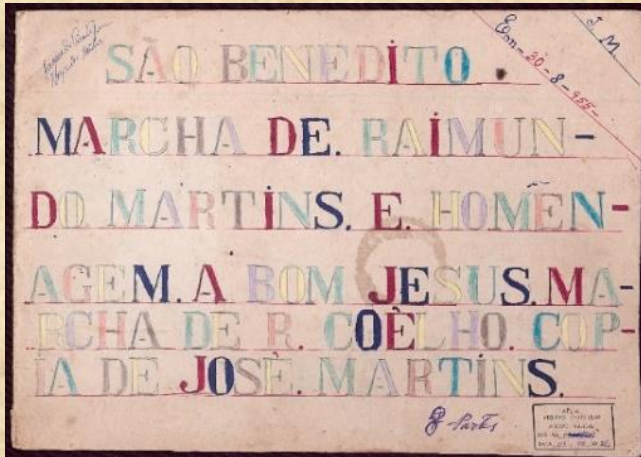 J. M
Em-20-8-955-
SÃO BENEDITO.
MARCHA DE. RAIMUN-
DO MARTINS. E. HOMEN-
AGEM. A BOM JESUS. MA-
RCHA DE R. COÊLHO. COP-
IA DE JOSÉ MARTINS.